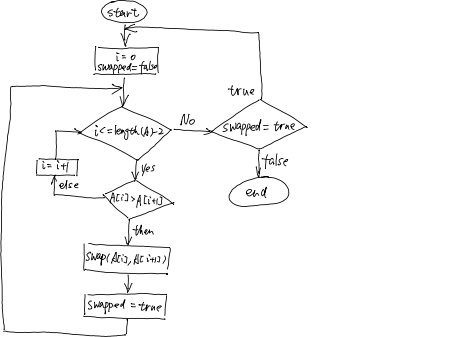 start
i = 0
swapped=false
i<=length(A)-2
No
true
swapped = true
false
end
i= i+1
else
yes
A[i]>A[i+1]
then
swap(A[i], A[i+1])
swapped = true